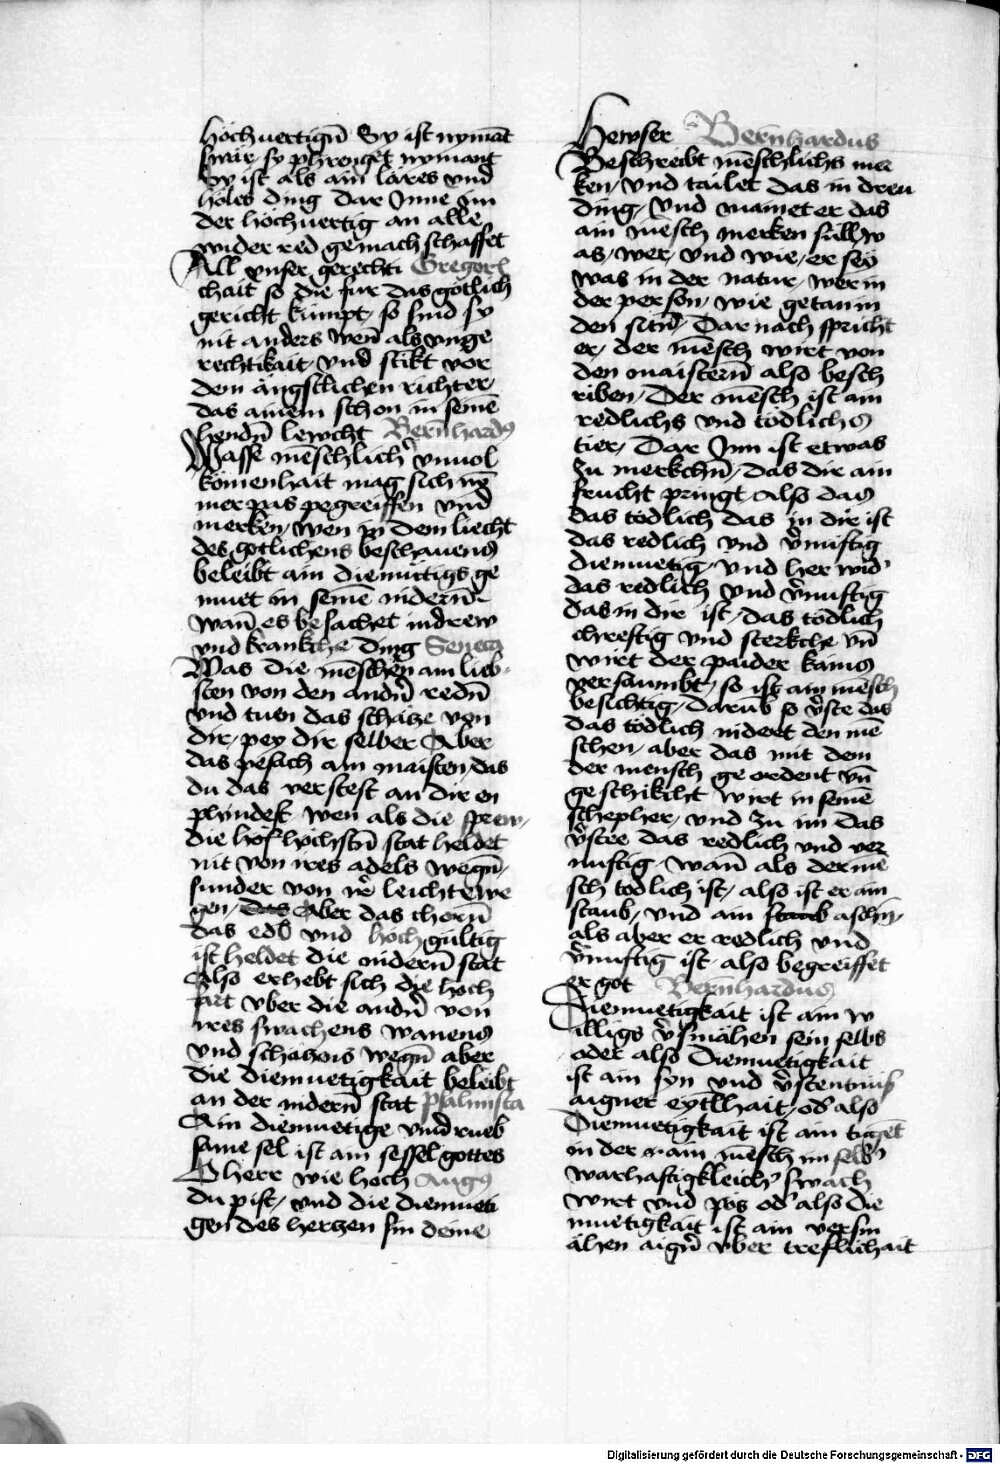 hochuertign̄ Sy ist nyman̄t
swär / sy phrenget nymant
Sy ist als ain läres vnd
holes ding dar Inne im
der hochuertig an alle
wider red gemach schaffet
All vnser gerechti Gregori9
chait so die fur das gotlich
gericht kumpt / so sind sy
nit anders wen̄ als vnge
rechtikait / vnd stikt vor
dem ängstlichen richter /
das ainem schon in seinē
hendn̄ lewcht Bernhard9
Wasse mēschlich' vnuol
komenhait mag sich ny
mer pas pegreiffen vnd
merken / wen in dem liecht
des gotlichens beschauens
beleibt ain diemütigs ge
muet in seinē nidern̄
wan̄ es besachet nidrew
vnd krankche ding Seneca
Was die mēschen am lieb-
sten von den andn̄ redn̄
vnd tuen das schätze von
dir / pey dir selber Aber
das vesich am maisten / das
du das verstest an dir en
phindest wen als die sprew /
die hof höchstn̄ stat heldet
nit von ires adels wegn̄ /
sunder von ir̄ leichte we
gen / das Aber das chorn̄
das edl vnd hoch gültig
ist heldet die nidern̄ stat
Also erhebt sich die hoch
fart vber die andn̄ von
ires swachens wanens
vnd schätzens wegn̄ aber
die diemuetigkait beleibt
an der nidern̄ stat psalmista
Ain diemuetige vnd rueb
same sel ist ain sessel gottes
O herr wie hoch Augu9
du pist / vnd die diemueti
gen des hertzen sin deine
Hewser Bernhardus
Beschreibt mēschlichs mer
ken / vnd tailet das in dreu
ding / vnd mainet er das
ain mēsch merken sull w
as / wer / vnd wie / er sey
was in der natur / wer in
der person / wie getan in
den sitn̄ / Dar nach spricht
er / der mēsch wirt von
den maistern̄ also besch
riben / Der mēsch ist ain
redlichs vnd tödlichs
tier / Dar Inn ist etwas
zu merkchn̄ / das dir ain
frucht pringt also das
das tödlich das in dir ist
das redlich vnd v̄nuftig
diemuetig / vnd her wid'
das redlich vnd v̄nuftig
das in dir ist / das tödlich
chreftig vnd sterkche vn̄
wirt der paider kains
versaumbt / so ist ain mēsch
besichtig / darūb so v̄ste das
das tödlich nidert den mē
schen / aber das mit dem
der mensch geordent vn̄
geschikiht wirt in seinē
schepher / vnd zu im das
v̄stee das redlich vnd ver
nuftig / wan̄ als der mē
sch todlich ist / also ist er ain
staub / vnd ain staub aschn̄ /
als aber er redlich vnd
v̄nuftig ist / also begreiffet
er got Bernhardus
Diemuetigkait ist ain w
illigs v̄smähen sein selbs
oder also Diemuetigkait
ist ain syn vnd v̄stentnüs
aigner eytlhait / od' also
Diemuetigkait ist ain tugēt
in der nain mēsch im selb'
warhaftigkleich' swach
wirt vnd pös od' also die
muetigkait ist ain versm
ähen aign̄ vber treflichait
Digitalisierung gefördert durch die Deutsche Forschungsgemeinschaft - DFG